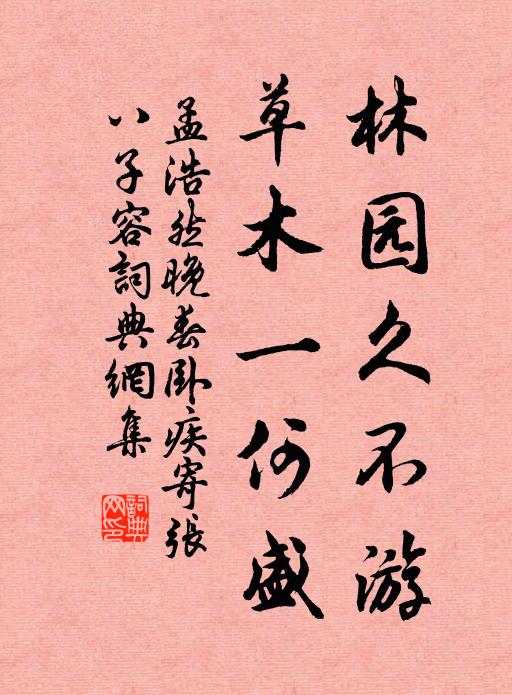 林园久不游
草木一何盛
孟浩然晚春卧疾寄张
八子容詞典網集
詞典
网印